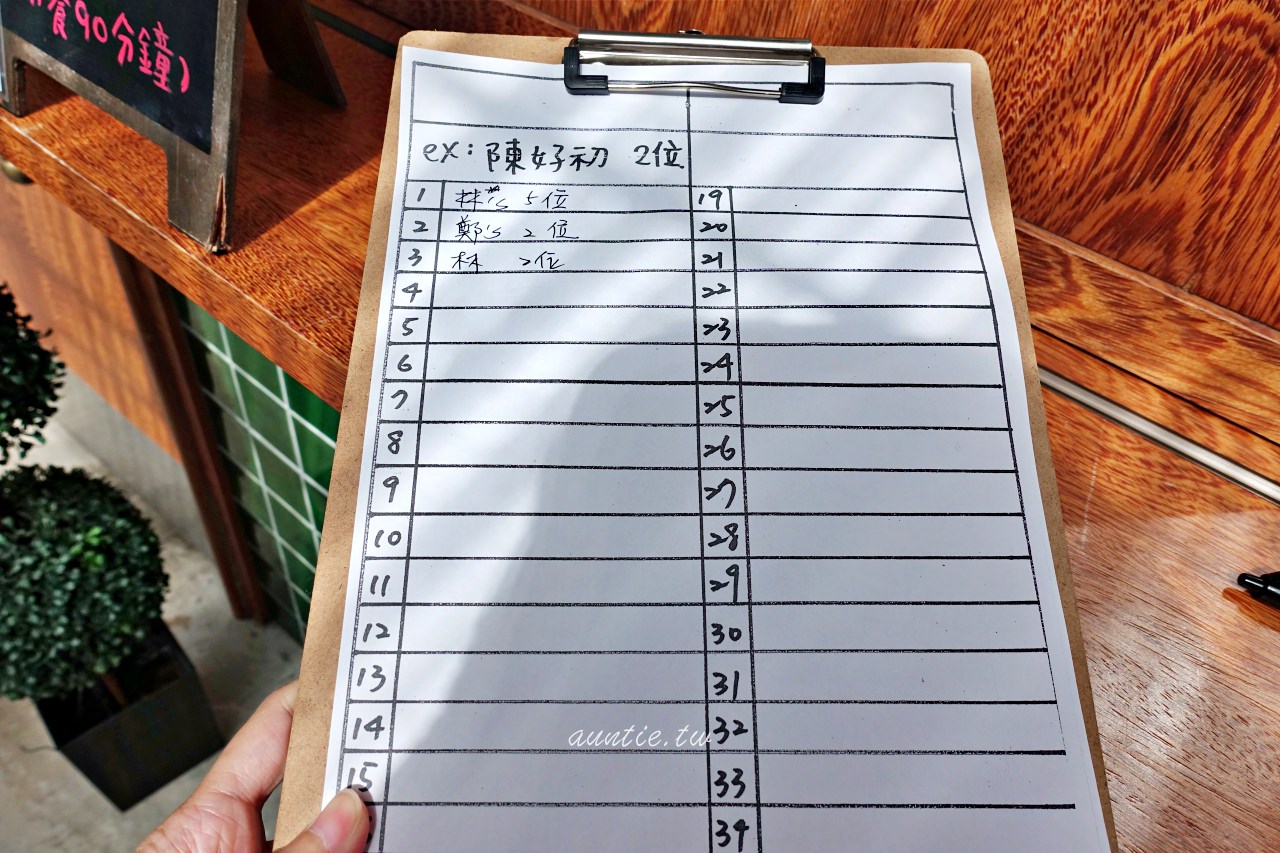 餐90分鐘)
ex: 陳好初 2位
1 林's 5位
2 鄭's 2位
3 林 2位
4
5
6
7
8
9
10
11
12
13
14
15
19
20
21
22
23
24
25
26
27
28
29
30
31
32
33
34
auntie.tw